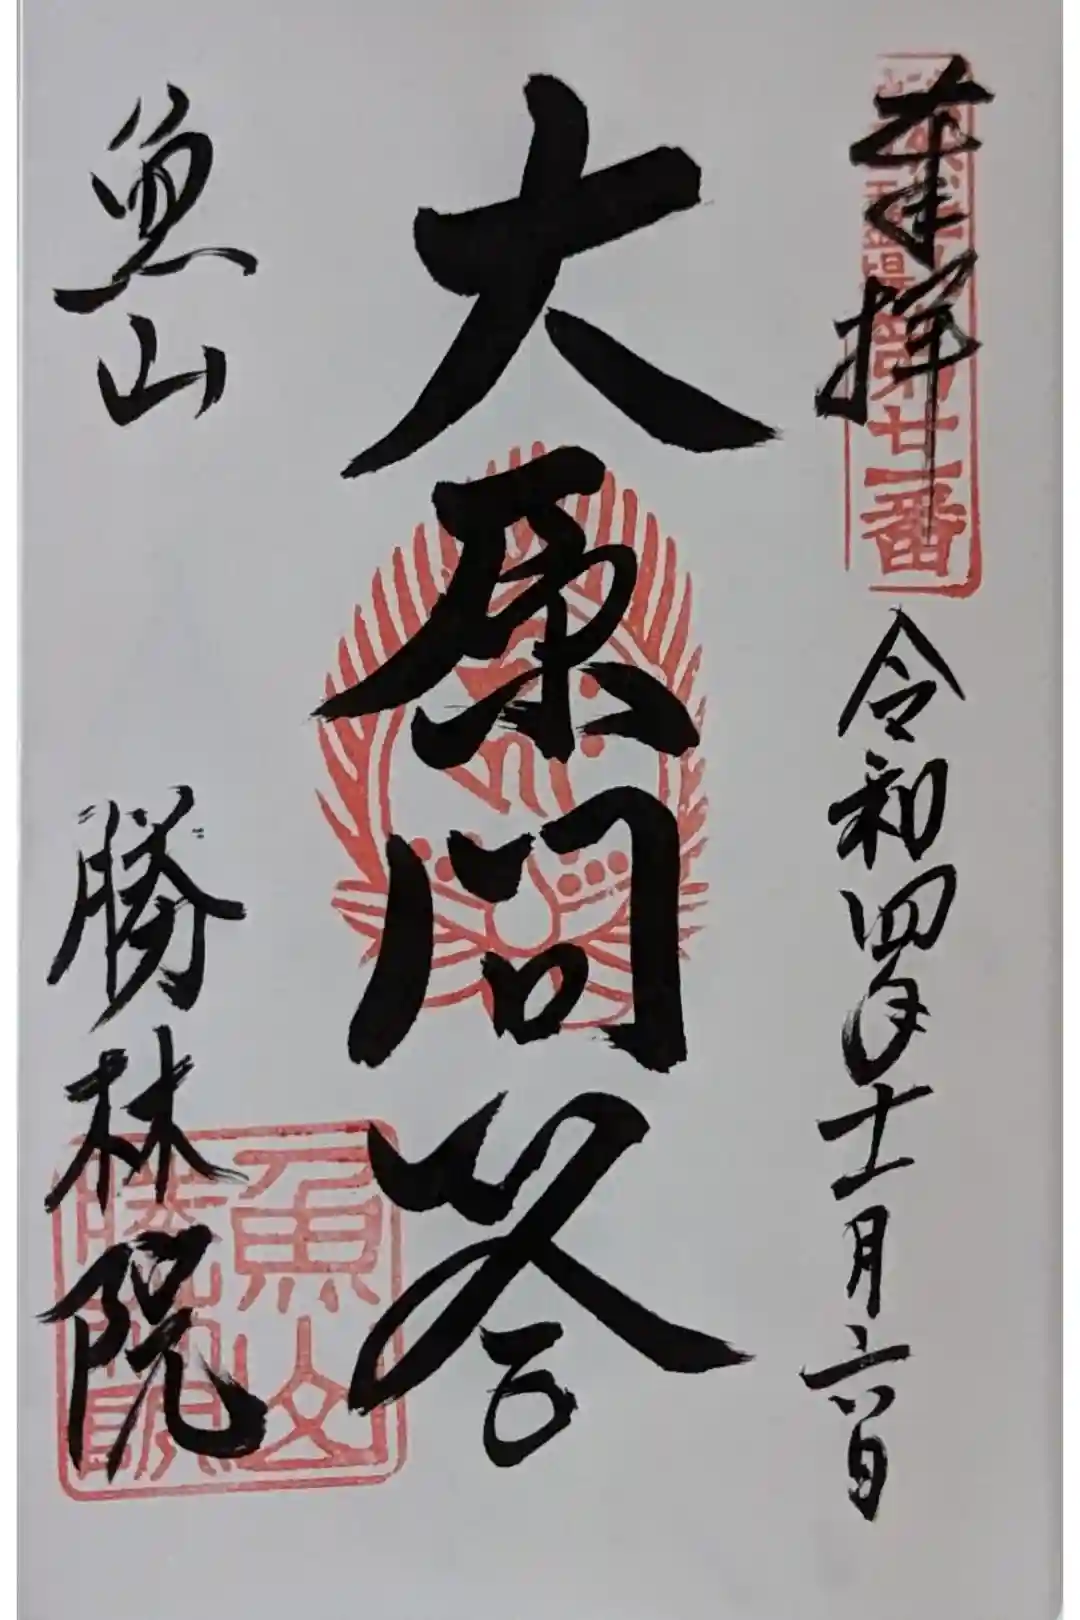 奉拝
第廿一番
令和四年十一月六日
大原問答
魚山
勝林院
魚山
勝林院